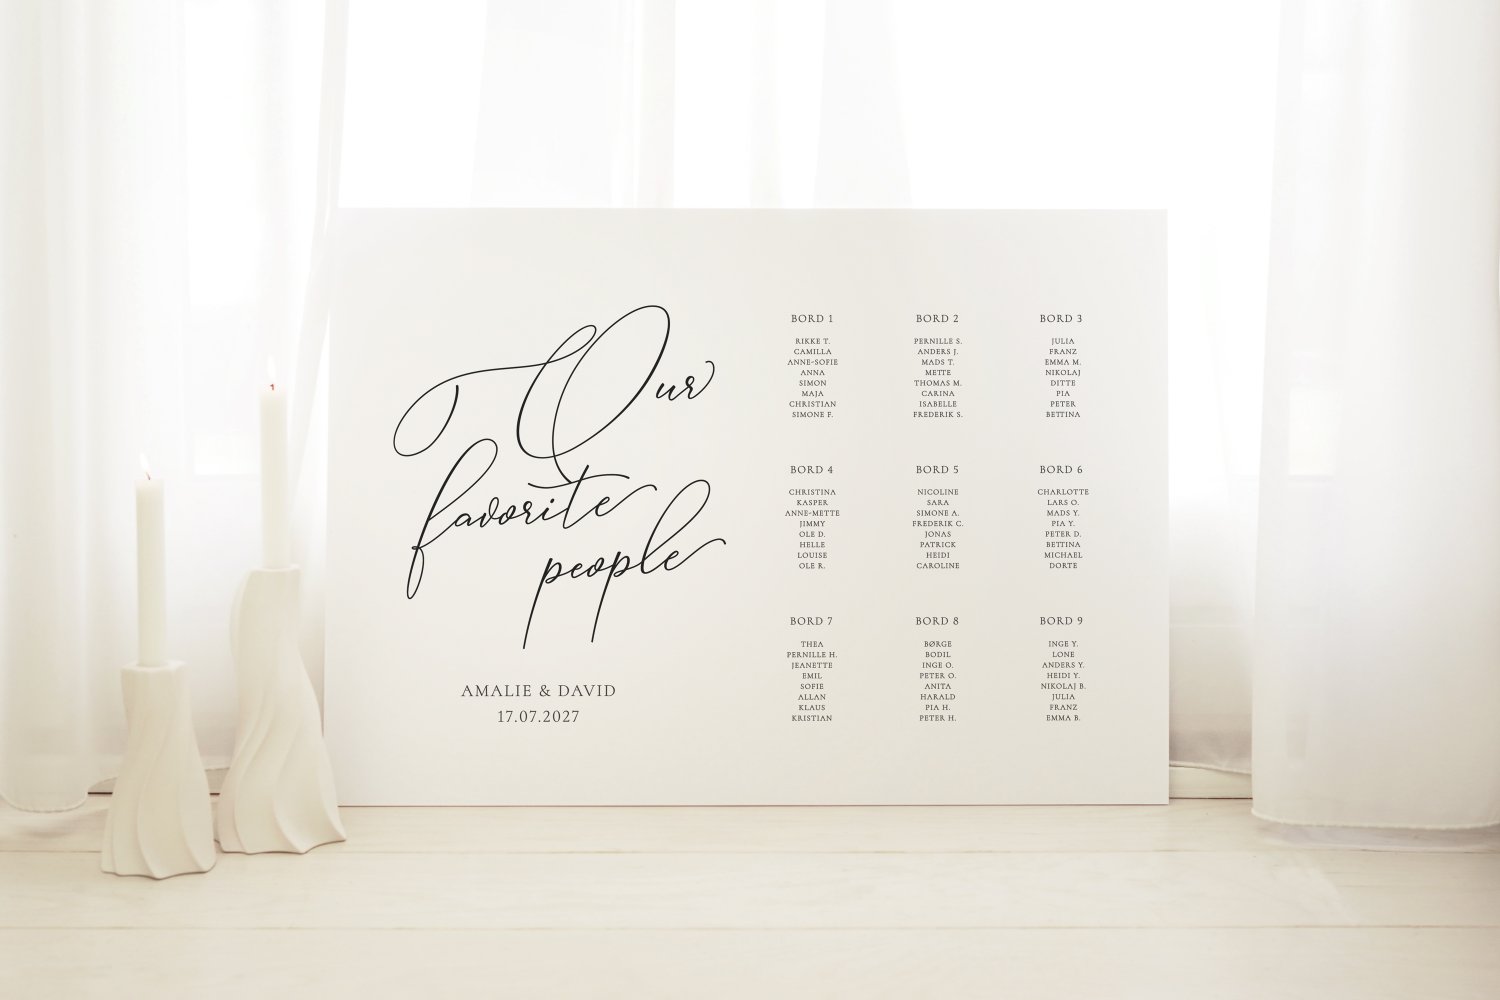 Our
favorite
people
AMALIE & DAVID
17.07.2027
BORD 1
RIKKE T.
CAMILLA
ANNE-SOFIE
ANNA
SIMON
MAJA
CHRISTIAN
SIMONE F.
BORD 2
PERNILLE S.
ANDERS J.
MADS T.
METTE
THOMAS M.
CARINA
ISABELLE
FREDERIK S.
BORD 3
JULIA
FRANZ
EMMA M.
NIKOLAJ
DITTE
PIA
PETER
BETTINA
BORD 4
CHRISTINA
KASPER
ANNE-METTE
JIMMY
OLE D.
HELLE
LOUISE
OLE R.
BORD 5
NICOLINE
SARA
SIMONE A.
FREDERIK C.
JONAS
PATRICK
HEIDI
CAROLINE
BORD 6
CHARLOTTE
LARS O.
MADS Y.
PIA Y.
PETER D.
BETTINA
MICHAEL
DORTE
BORD 7
THEA
PERNILLE H.
JEANETTE
EMIL
SOFIE
ALLAN
KLAUS
KRISTIAN
BORD 8
BØRGE
BODIL
INGE O.
PETER O.
ANITA
HARALD
PIA H.
PETER H.
BORD 9
INGE Y.
LONE
ANDERS Y.
HEIDI Y.
NIKOLAJ B.
JULIA
FRANZ
EMMA B.